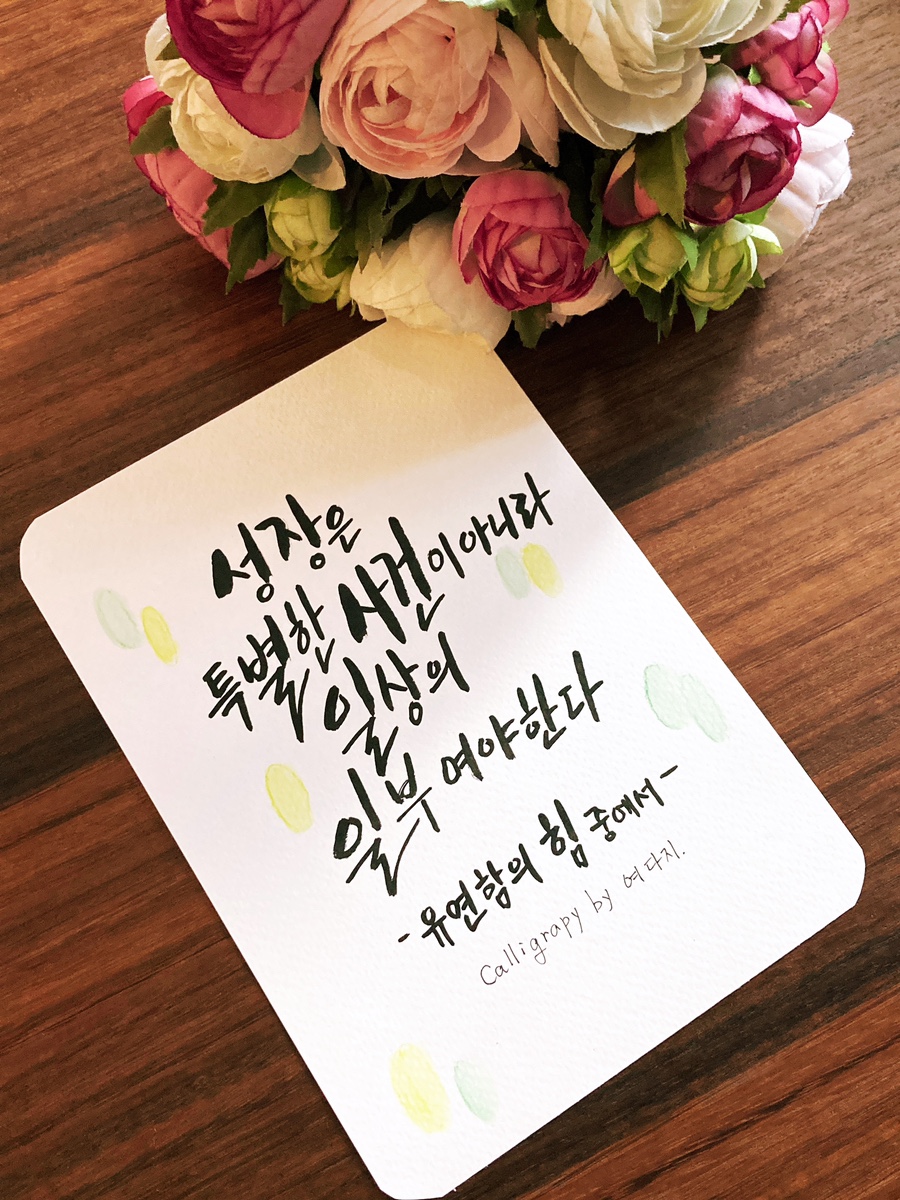 성장은
특별한 사건이 아니라
일상의
일부여야한다
- 유연함의 힘 중에서 -
Calligrapy by 여다지.